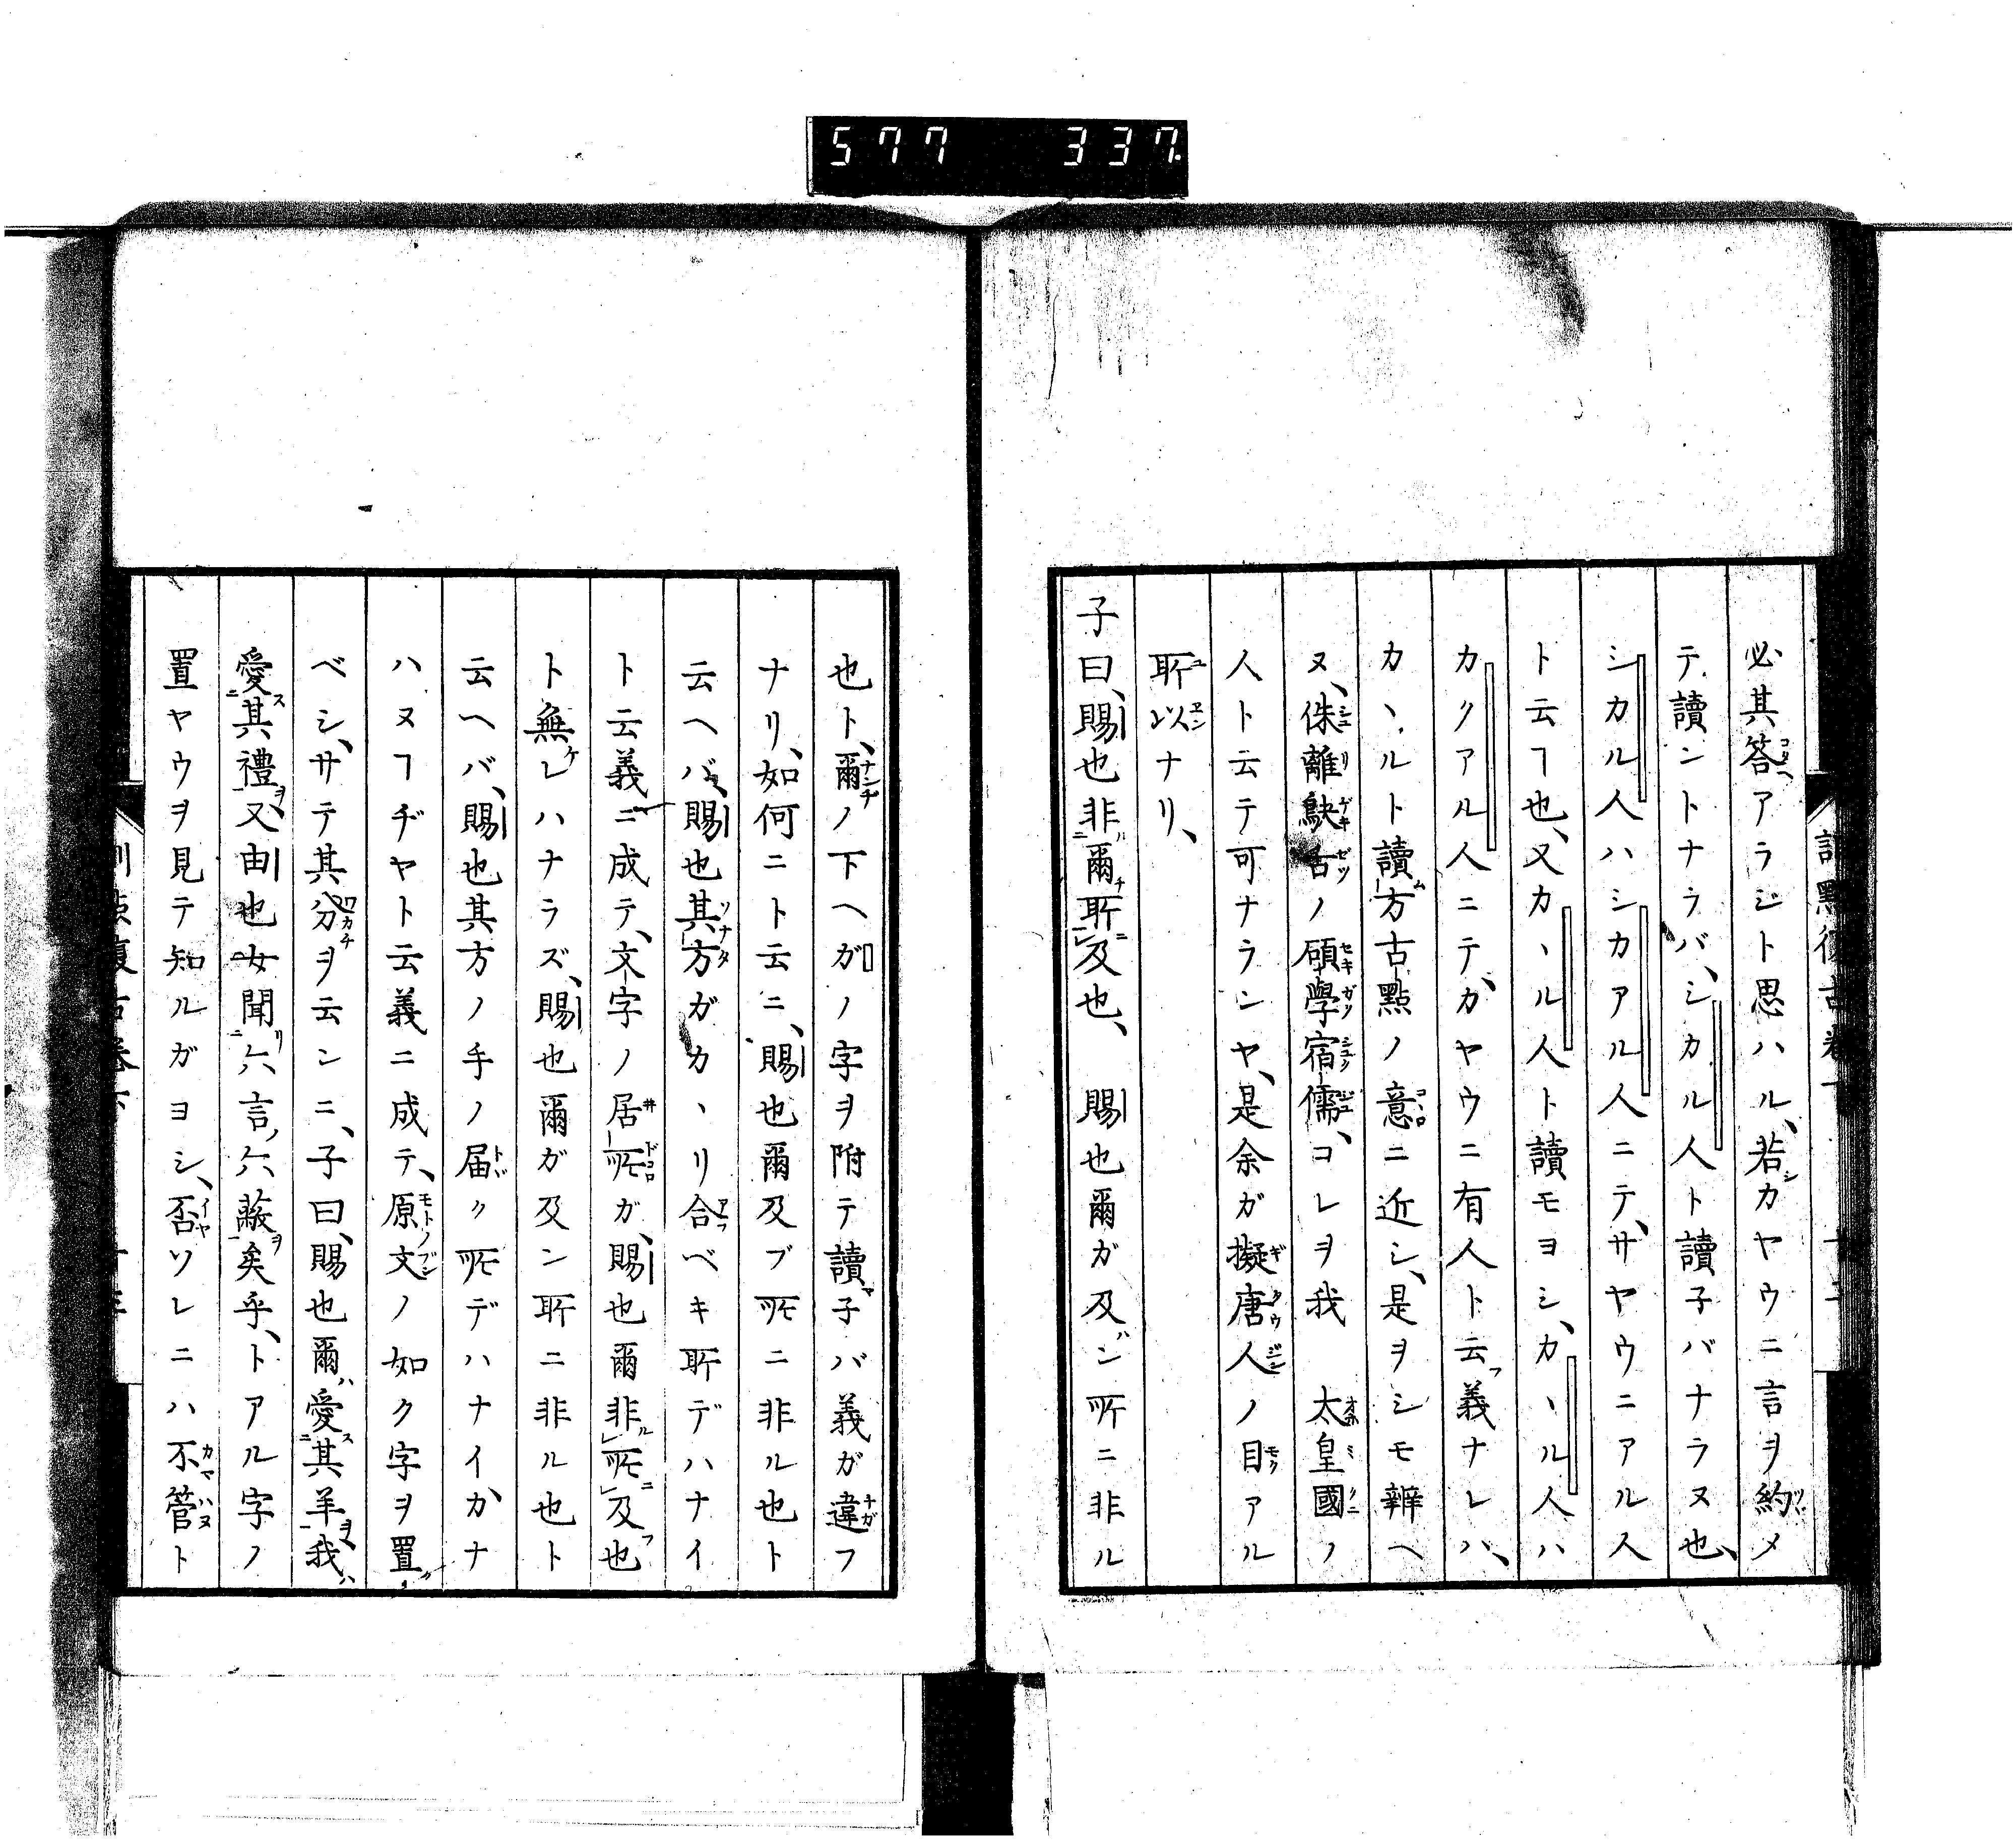 577 337
必其答アラジト思ハル、若カヤウニ言ヲ約メ
テ讀ントナラバ、シカル人ト讀子バナラヌ也、
シカル人ハシカアル人ニテ、サヤウニアル人
ト云ヿ也、又カヽル人ト讀モヨシ、カヽル人ハ
カクアル人ニテ、カヤウニ有人ト云フ義ナレハ、
カヽルト讀ム方古點ノ意ニ近シ、是ヲシモ辨ヘ
ヌ、侏離鴃舌ノ碩學宿儒、コレヲ我 太皇國ノ
人ト云テ可ナランヤ、是余ガ擬唐人ノ目アル
所以ナリ、
子曰、賜也非爾所及也、 賜也爾ガ及ン所ニ非ル
也ト、爾ノ下ヘガノ字ヲ附テ讀子バ義ガ違フ
ナリ、如何ニト云ニ、賜也爾及ブ所ニ非ル也ト
云ヘバ、賜也其方ガカヽリ合ベキ所デハナイ
ト云義ニ成テ、文字ノ居所ガ、賜也爾非所及也
ト無レハナラズ、賜也爾ガ及ン所ニ非ル也ト
云ヘバ、賜也其方ノ手ノ届ク所デハナイ、カナ
ハヌヿヂヤト云義ニ成テ、原文ノ如ク字ヲ置
ベシ、サテ其分ヲ云ンニ、子曰、賜也爾愛其羊、我
愛其禮、又由也女聞六言六蔽矣乎、トアル字ノ
置ヤウヲ見テ知ルガヨシ、否ソレニハ不管ト